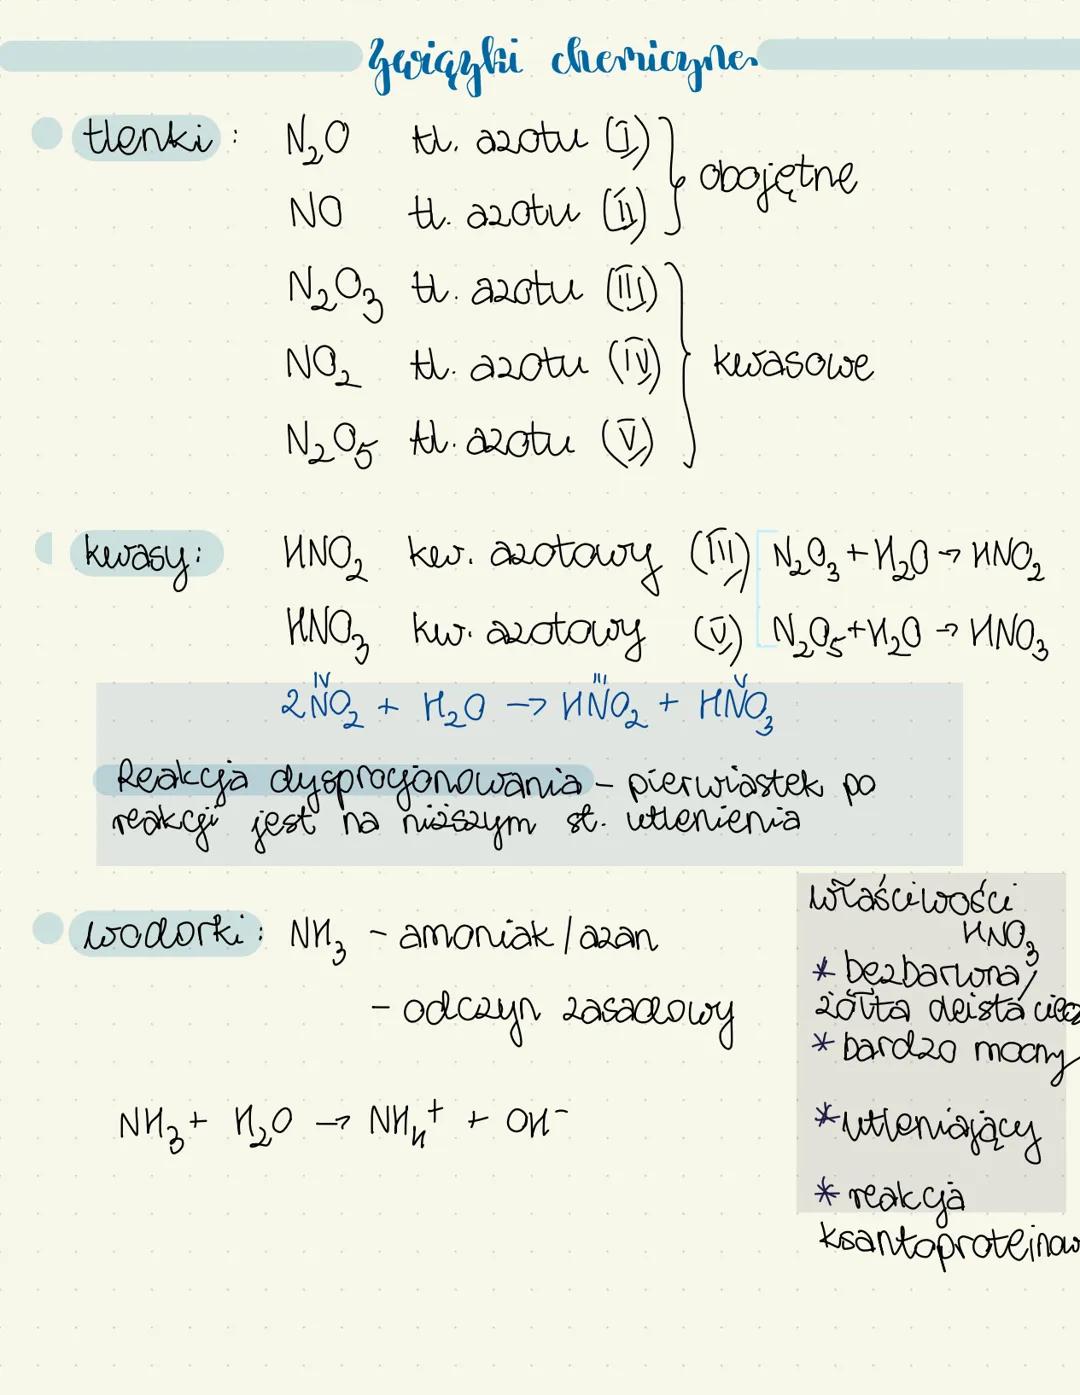 Związki chemiczne
tlenki: N₂O tl. azotu (I)
NO tl. azotu (II)
obojętne
N₂O₃ tl. azotu (III)
NO₂ tl. azotu (IV)
N₂O₅ tl. azotu (V)
kwasowe
kwasy: HNO₂ kw. azotowy (III) N₂O₃ + H₂O → HNO₂
HNO₃ kw. azotowy (V) N₂O₅ + H₂O → HNO₃
IV III V
2NO₂ + H₂O → HNO₂ + HNO₃
Reakcja dysprocjonowania - pierwiastek po
reakcji jest na niższym st. utlenienia
wodorki: NH₃ - amoniak / azan
- odczyn zasadowy
NH₃ + H₂O → NH₄⁺ + OH⁻
właściwości
HNO₃
* bezbarwna/
żółta oleista ciecz
* bardzo mocny
* utleniający
* reakcja
ksantoproteinow